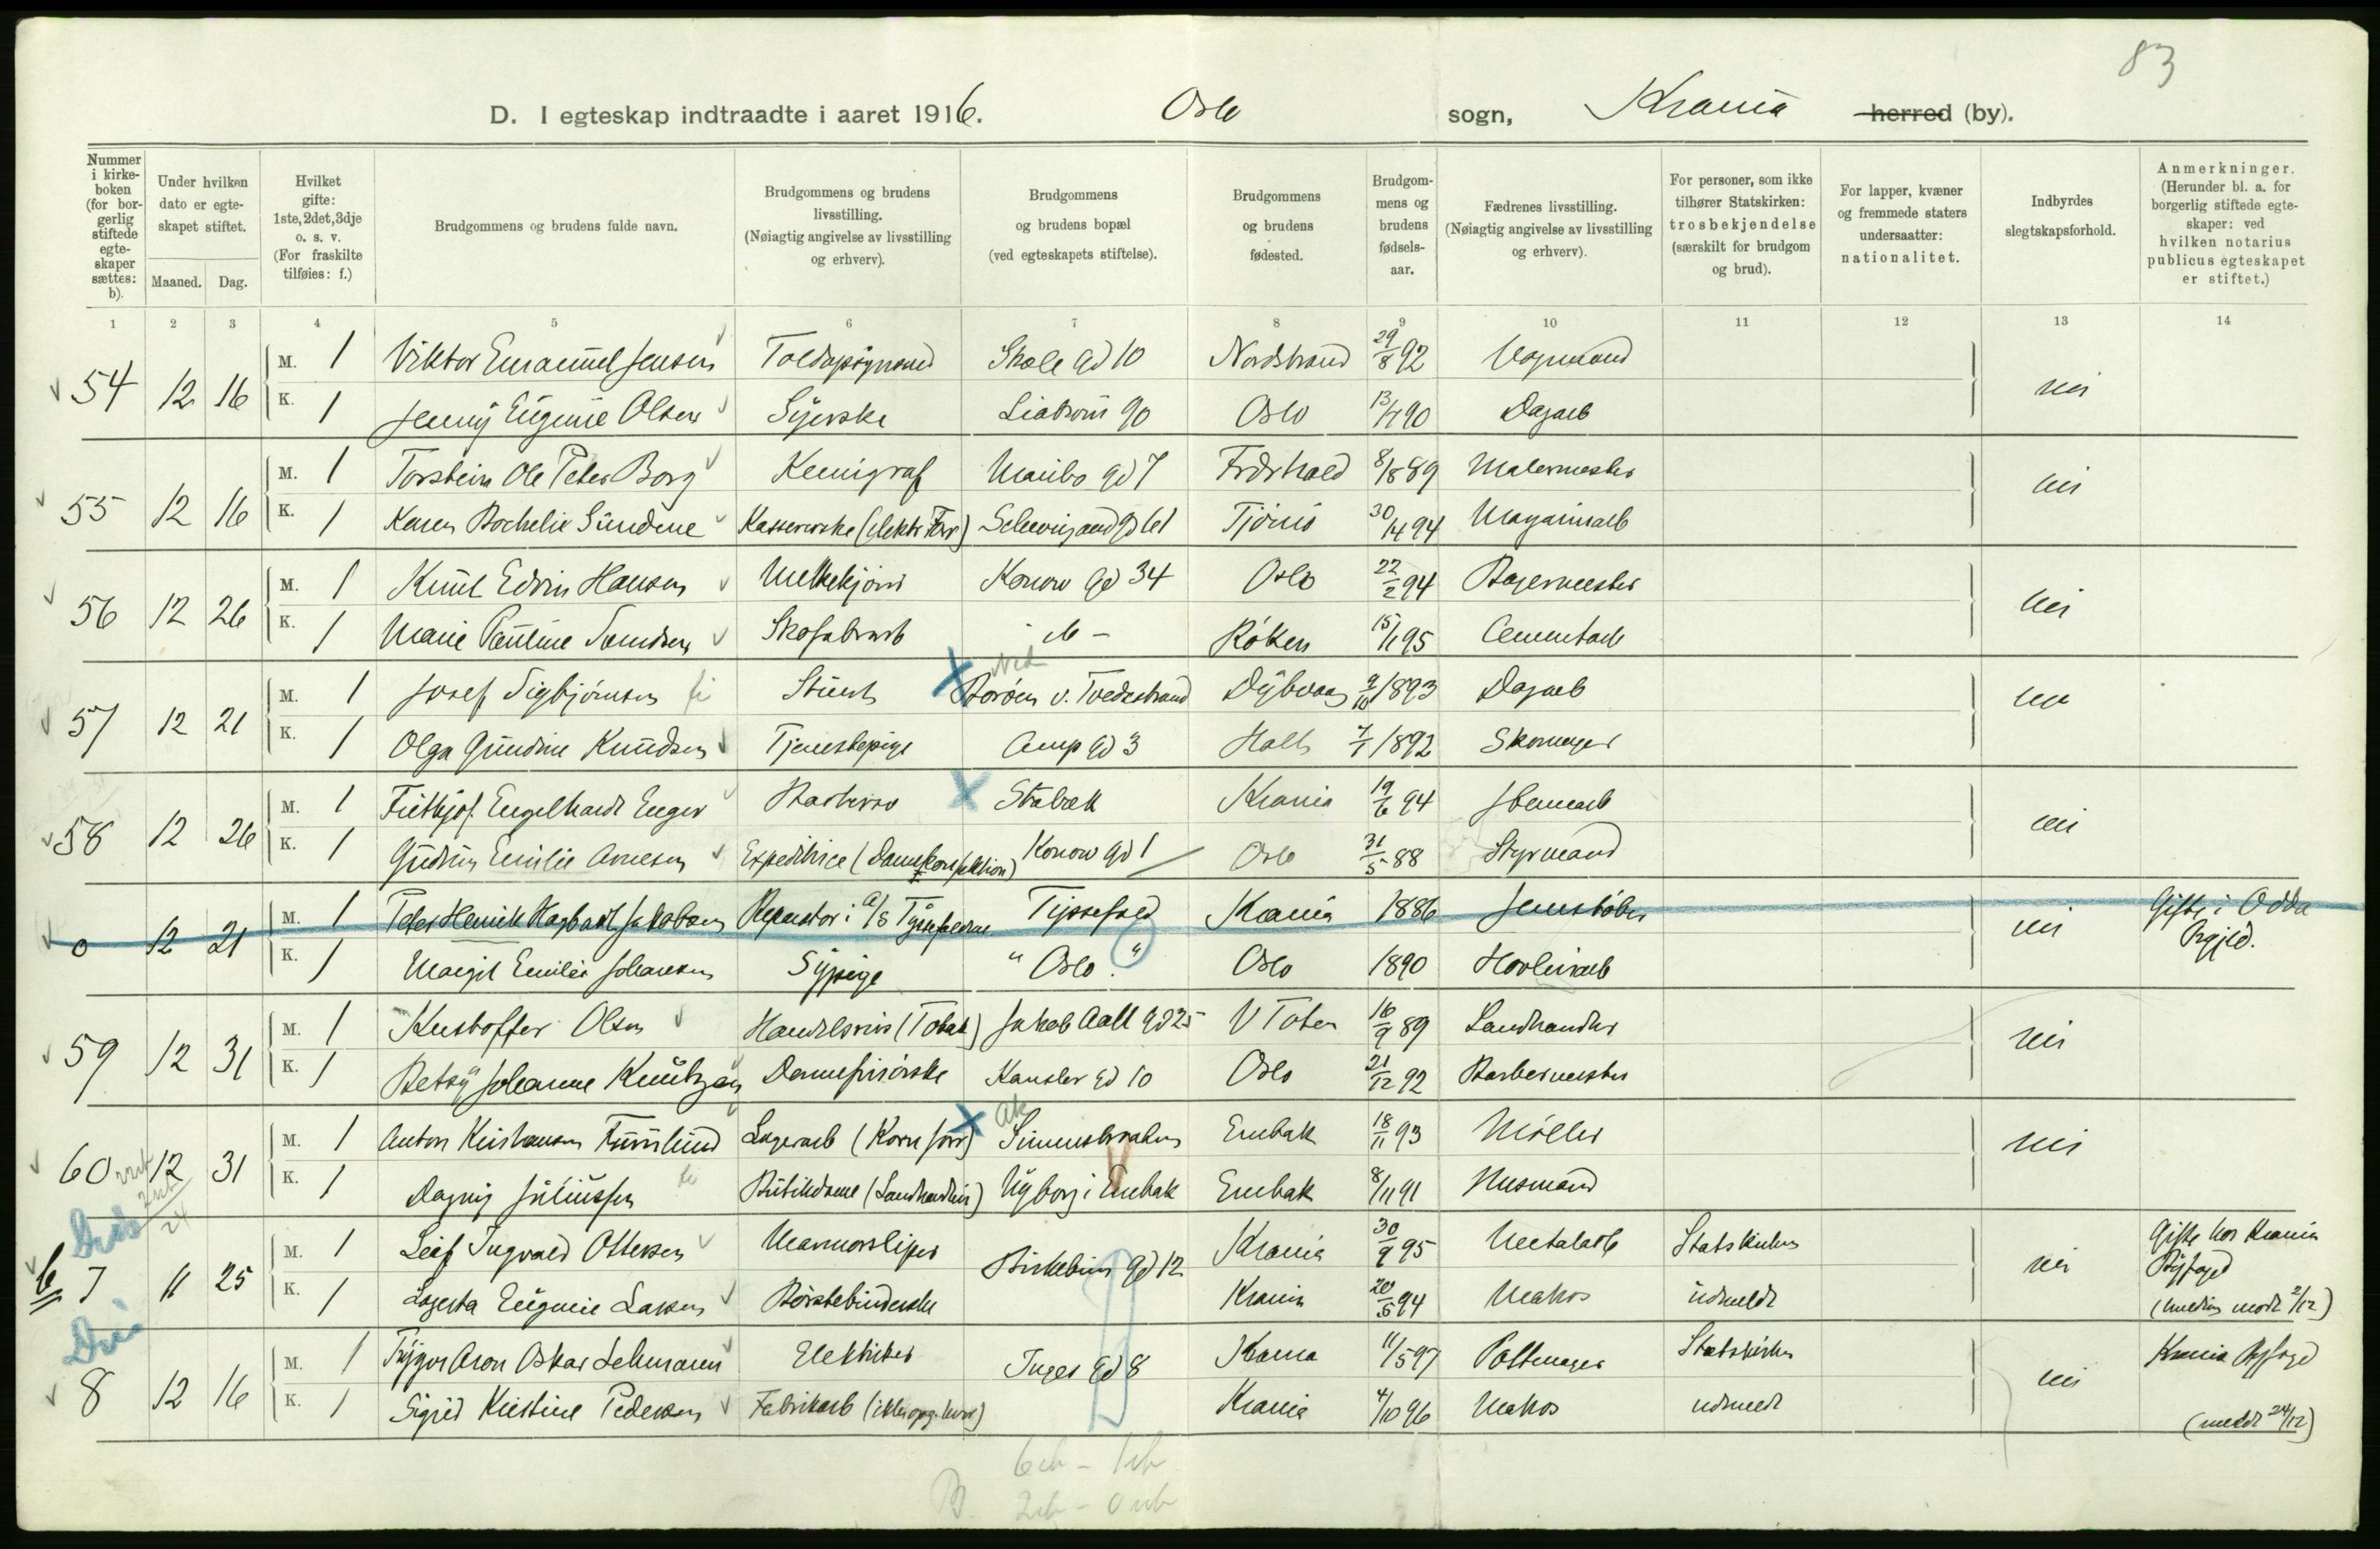 83
D. I egteskap indtraadte i aaret 1916. Oslo sogn, Krania herred (by).
Nummer i kirkeboken (for borgerlig stiftede egteskaper sættes: b).
Under hvilken dato er egteskapet stiftet.
Maaned. Dag.
Hvilket gifte: 1ste, 2det, 3dje o. s. v. (For fraskilte tilføies: f.)
Brudgommens og brudens fulde navn.
Brudgommens og brudens livsstilling. (Nøiagtig angivelse av livsstilling og erhverv).
Brudgommens og brudens bopæl (ved egteskapets stiftelse).
Brudgommens og brudens fødested.
Brudgommens og brudens fødselsaar.
Fædrenes livsstilling. (Nøiagtig angivelse av livsstilling og erhverv).
For personer, som ikke tilhører Statskirken: trosbekjendelse (særskilt for brudgom og brud).
For lapper, kvæner og fremmede staters undersaatter: nationalitet.
Indbyrdes slegtskapsforhold.
Anmerkninger. (Herunder bl. a. for borgerlig stiftede egteskaper: ved hvilken notarius publicus egteskapet er stiftet.)
1 2 3 4 5 6 7 8 9 10 11 12 13 14
54 12 16 M. 1 Viktor Emanuel Jensen Toldopsynsmand Skole gd 10 Nordstrand 29/8 92 Vognmand nei
K. 1 Jenny Eugenie Olsen Syerske Liabrovn 90 Oslo 13/7 90 Dagarb
55 12 16 M. 1 Torstein Ole Peter Borg Kemigraf Maribo gd 7 Frdrhald 8/8 89 Malermester nei
K. 1 Karen Bochelie Sundene Kassererske (elektr. Forr) Schweigaard gd 61 Tjømø 30/4 94 Magasinarb
56 12 26 M. 1 Knut Edvin Hansen Melkekjører Konow gd 34 Oslo 22/2 94 Bagermester nei
K. 1 Marie Pauline Svendsen Skofabrarb - do - Røken 15/1 95 Cementarb
57 12 21 M. 1 Josef Sigbjørnsen Stuert Borøen v. Tvedestrand Dybvaag 9/10 1893 Dagarb nei
K. 1 Olga Gundine Knudsen Tjenestepige Amp gd 3 Holt 7/1 1892 Skomager
58 12 26 M. 1 Frithjof Engelhardt Enger Barbersv Stabæk Krania 19/6 94 Jernarb nei
K. 1 Gudrun Emilie Arnesen Expeditrice (Damekonfektion) Konow gd 1 Oslo 31/5 88 Styrmand
0 12 21 M. 1 Peter Henrik Hagbart Jakobsen Reparatør i A/S Tyssefaldene Tyssefald Krania 1886 Jernstøber nei Gifte i Odda Prgjld.
K. 1 Margit Emilie Johansen Sypige "Oslo." Oslo 1890 Høvleriarb
59 12 31 M. 1 Kristoffer Olsen Handelsreis (Tobak) Jakob Aall gd 25 V Toten 16/9 89 Landhandler nei
K. 1 Betsy Johanne Knutzen Damefrisørske Kansler gd 10 Oslo 21/12 92 Barbermester
60 12 31 M. 1 Anton Kristiansen Lagerarb (Korn forr) Ak Sinnsbraaten Enebak 18/11 93 Møller nei
K. 1 Dagny Juliussen Butikdame (Landhandleri) Nyborg i Enebak Enebak 8/11 91 Husmand
b 7 11 25 M. 1 Leif Ingvald Ottesen Marmorsliper Birkebein gd 12 Krania 30/9 95 Metalarb Statskirken nei Gifte hos Krania Byfoged
K. 1 Lagerta Eugenie Larsen Børstebinderske Krania 20/5 94 Matros udmeldt (meldin modt 2/12)
8 12 16 M. 1 Trygve Aron Oskar Lehmann Elektriker Inges gd 8 Krania 11/5 97 Pottemager Statskirken nei Krania Byfoged
K. 1 Sigrid Kristine Pedersen Fabrikarb (ikke opg. hvor) Krania 4/10 96 Matros udmeldt (meldt 24/12)